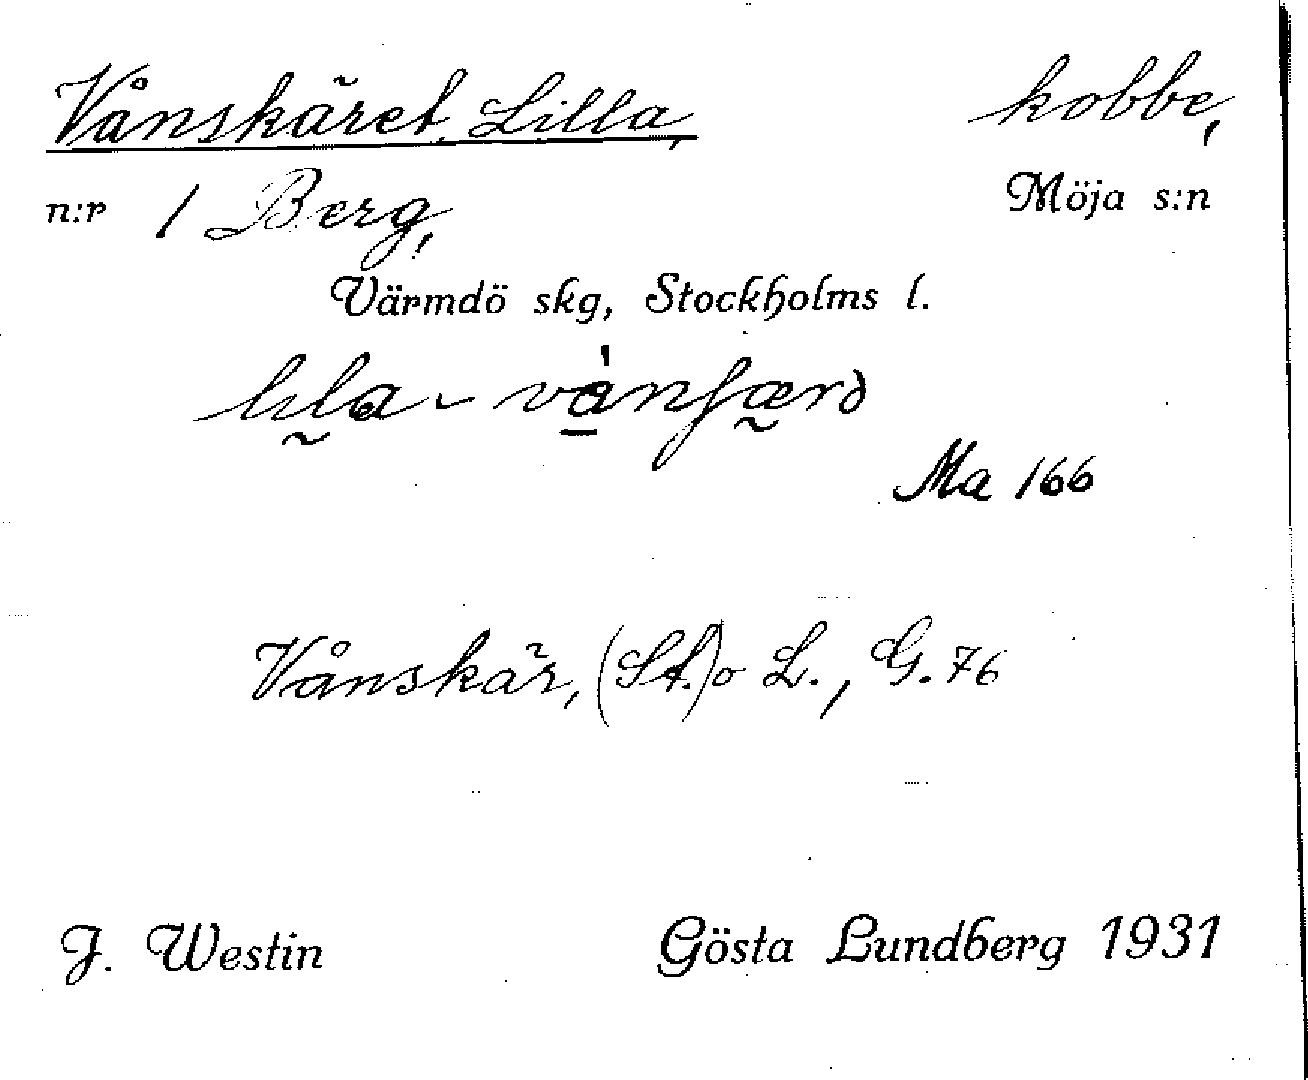 Vånskäret, Lilla, kobbe,
n:r 1 Berg, Möja s:n
Värmdö skg, Stockholms l.
Ma 166
Vånskär, (St.) o L., G. 76
J. Westin Gösta Lundberg 1931